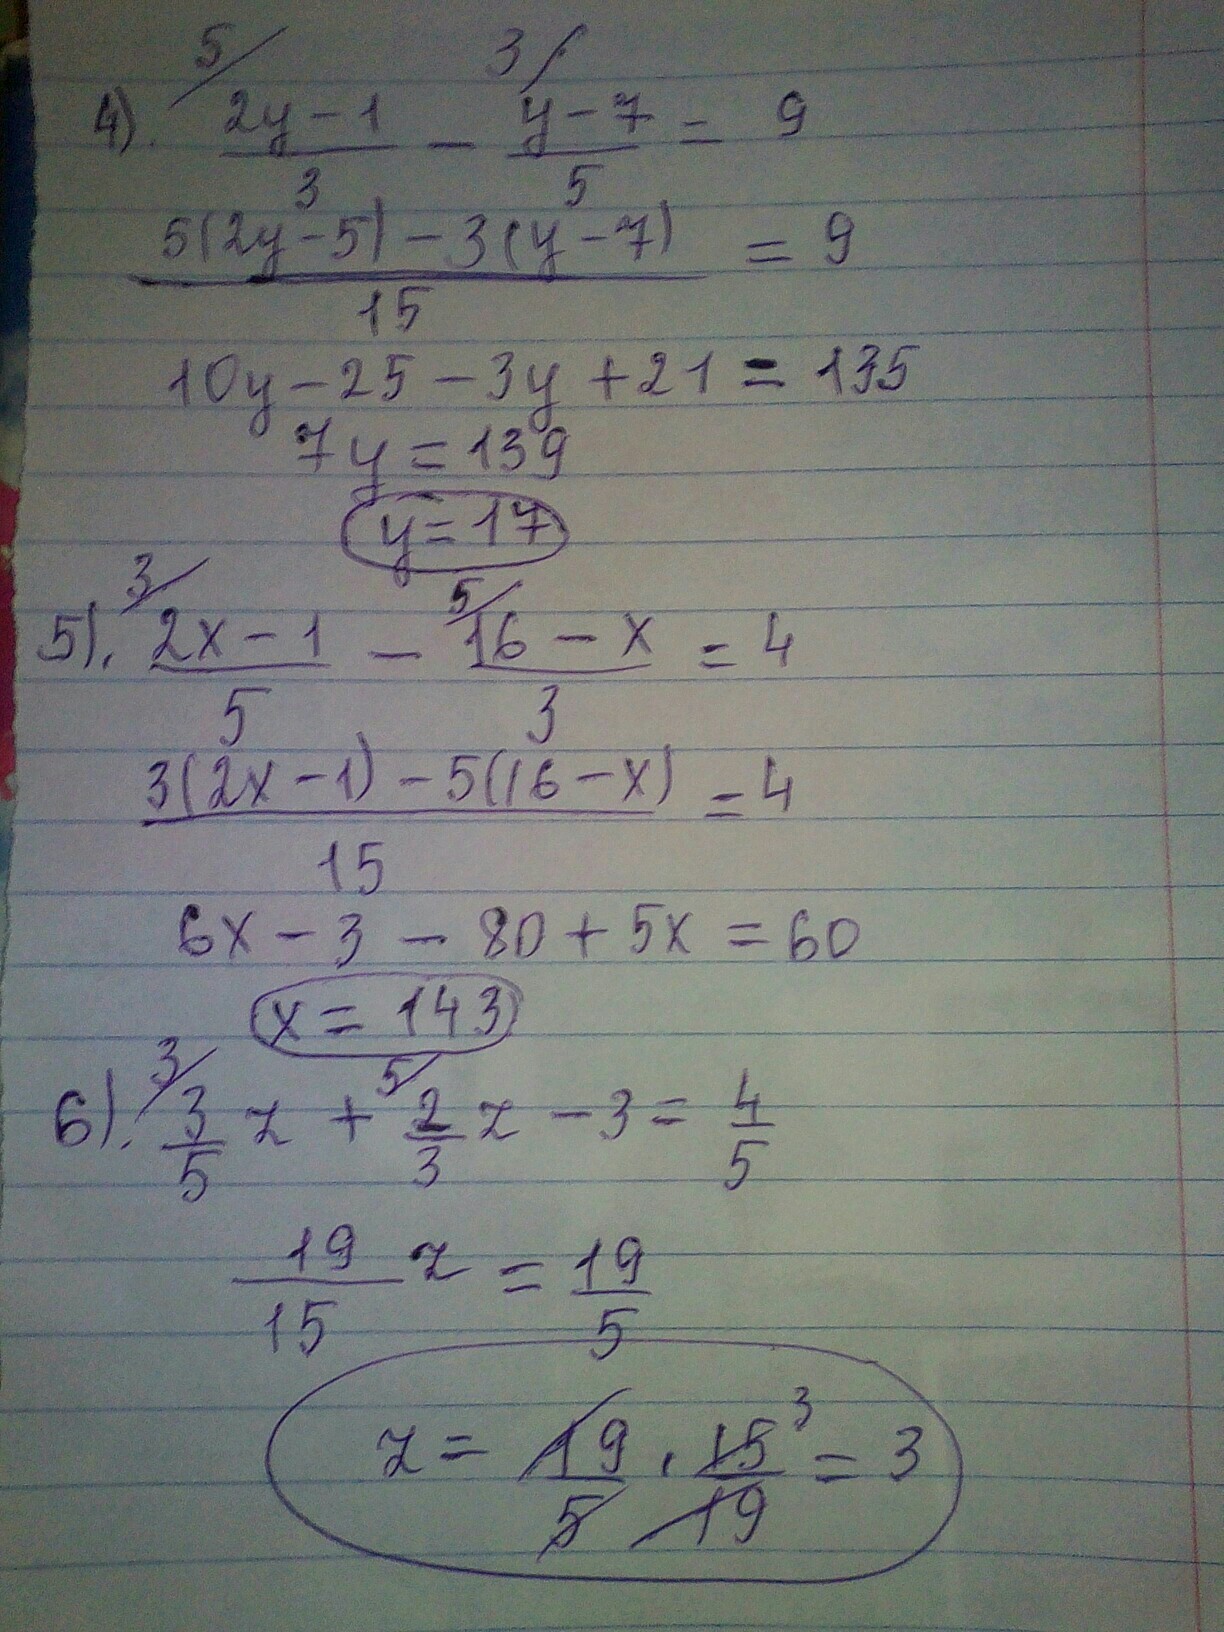 5/ 3/
4). (2y-1)/3 - (y-7)/5 = 9
(5(2y-5)-3(y-7))/15 = 9
10y-25-3y+21=135
7y=139
y=17
3/ 5/
5). (2x-1)/5 - (16-x)/3 = 4
(3(2x-1)-5(16-x))/15 = 4
6x-3-80+5x=60
x=143
3/ 5/
6). 3/5 z + 2/3 z - 3 = 4/5
19/15 z = 19/5
z = 19/5 · 15/19 ³ = 3